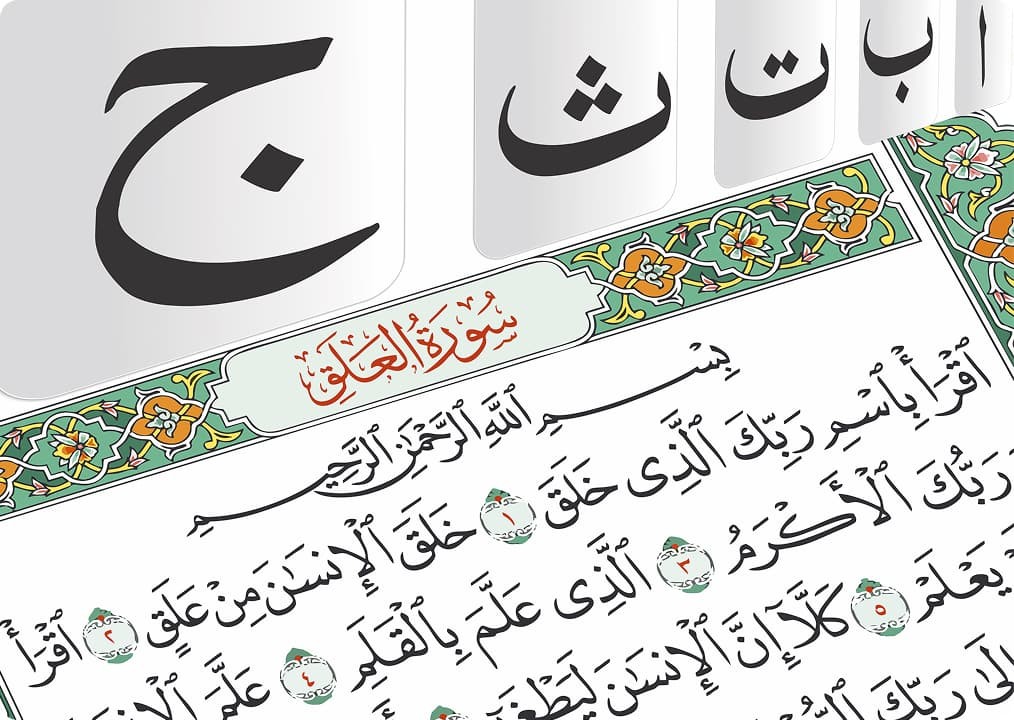 ا ب ت ث ج
سُورَةُ الْعَلَقِ
بِسْمِ ٱللَّهِ ٱلرَّحْمَٰنِ ٱلرَّحِيمِ
ٱقْرَأْ بِٱسْمِ رَبِّكَ ٱلَّذِى خَلَقَ ١ خَلَقَ ٱلْإِنسَٰنَ مِنْ عَلَقٍ ٢ ٱقْرَأْ
وَرَبُّكَ ٱلْأَكْرَمُ ٣ ٱلَّذِى عَلَّمَ بِٱلْقَلَمِ ٤ عَلَّمَ ٱلْإِنسَٰنَ
يَعْلَمْ ٥ كَلَّآ إِنَّ ٱلْإِنسَٰنَ
رَبِّكَ